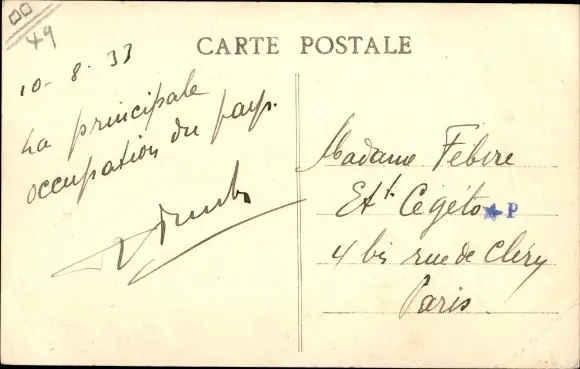 49
CARTE POSTALE
10-8-33
La principale
occupation du pays.
Madame Febvre
Etts Cégéto P
4 bis rue de Cléry
Paris